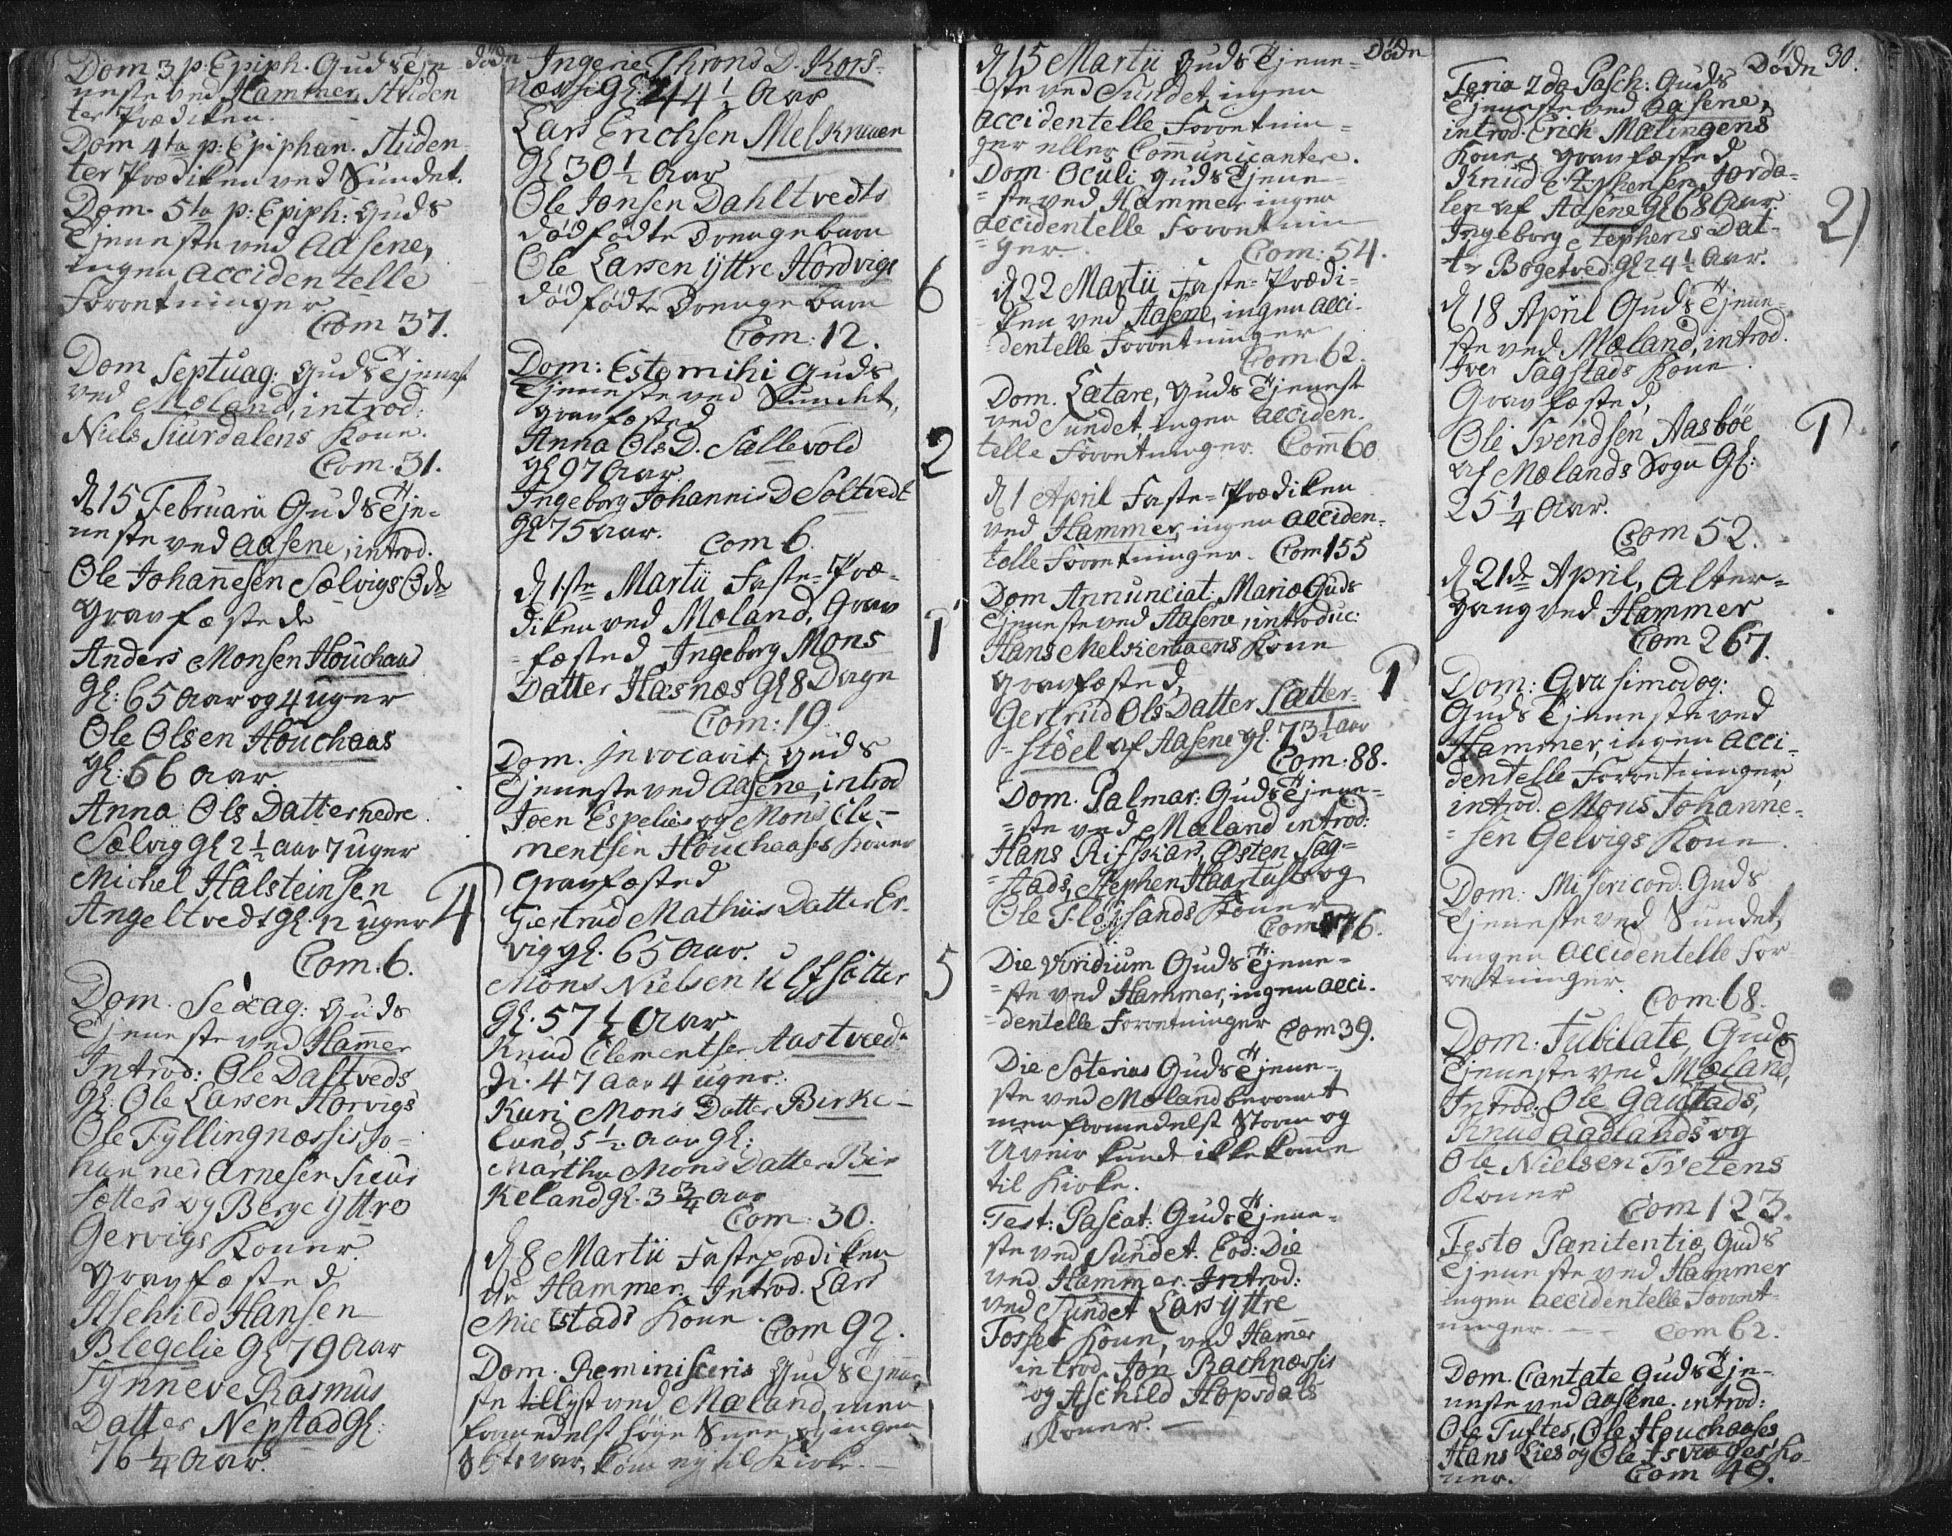 Dom 3 p: Epiph. Guds Tje
neste ved Hammer, Studen
ter Prædiken.
Dom 4ta p: Epiphan. Studen
ter Prædiken ved Sundet.
Dom. 5ta p: Epiph: Guds
Tjeneste ved Aasene,
ingen Accidentelle
Forretninger
Com 37.
Dom Septuag: Guds Tjenest
ved Mæland, introd:
Niels Siurdalens Kone.
Com. 31.
d 15 Februarii Guds Tje-
neste ved Aasene, introd.
Ole Johannesen Sælvigs
Gravfæstede
Anders Monsen Houchaas
Gl: 65 Aar og 4 uger
Ole Olsen Houchaas
gl: 66 Aar
Anna Ols Datter nedre
Sælvig gl 2 1/2 aar 7 uger
Michel Halsteinsen
Angeltvedt gl. 12 uger
4
Com. 6.
Dom. Sexag: Guds
Tjeneste ved Hamer
Introd: Ole Daltveds
gl: Ole Larsen Horvigs
Ole Fyllingnæssis, Jo-
hannes Arnesen Sieur
sætter og Berge yttre
Gervigs Koner
Gravfæsted
Aschild Hansen
Blegelie gl 79 Aar
Synneve Rasmus
Datter Nepstad gl:
76 1/4 Aar.
Dødn
Ingerie Throns D. Kors-
næs gl: 44 1/2 Aar
Lars Erichsen Melkraaen
gl 30 1/2 Aar
Ole Jonsen Dahltvedts
dødfødte Drenge barn
Ole Larsen yttre Hordvigs
dødfødte Drenge barn
6
Com: 12.
Dom: Estomihi Guds
Tjeneste ved Sundet,
gravfæsted
Anna Ols D. Sallevold
gl 97 Aar.
2
Ingeborg Johannis D Soltvedt
gl 75 aar.
Com 6.
d 1ste Martii Faste-Præ-
diken ved Mæland, Grav
fæsted Ingeborg Mons
1
Datter Hæsnæs gl 8 Dage
Com: 19.
Dom. Invocavit, Guds
Tjeneste ved Aasene, introd
Joen Espelies og Mons Cle-
mentsen Houchaases Koner
Gravfæsted
Giertrud Mathiis Datter Er-
vig gl. 65 Aar.
Mons Nielsen Ulfsætter
5
gl. 57 1/2 Aar
Knud Clementsen Aastveed-
gl. 47 aar 4 uger.
Kari Mons Datter Birke-
lund, 5 1/2 Aar gl:
Martha Mons Datter Bir
keland gl. 3 3/4 aar
Com: 30.
d 8 Martii Fasteprædiken
Hammer. Introd. Lars
Mielstads Kone.
Com 92.
Dom. Reminisceris Guds Tjene
ste tillyst ved Mæland, men
formedelst høye Snee, og ingen
kom ey til Kirke.
d 15 Martii Guds Tjene-
ste ved Sundet, ingen
Accidentelle Forretnin-
ger eller Communicantere.
Dom. Oculi Guds Tjene-
ste ved Hammer ingen
Accidentelle Forretnin
ger.
Com: 54.
d 22 Martii Faste-Prædi-
ken ved Aasene, ingen Acci-
dentelle Forretninger
Com 62.
Dom. Lætare, Guds Tjeneste
ved Sundet ingen Acciden-
telle Forretninger. Com 60
d 1 April Faste-Prædiken
ved Hammer, ingen Acciden-
telle Forretninger. Com 155
Dom Annunciat: Mariæ Guds
Tjeneste ved Aasene, introduc:
Hans Melkeraaens Kone
Gravfæsted,
Gertrud Ols Datter Sætter-
1
støel af Aasene gl: 73 1/2 aar
Com: 88.
Dom. Palmar: Guds Tjene-
ste ved Mæland introd:
Hans Rifskiær, Østen Sag-
stads, Stephen Haartufts og
Ole Fløjsands Koner
Com 176.
Die Viridium Guds Tjene-
ste ved Hammer, ingen Acci-
dentelle Forretninger Com 39.
Die Soterias Guds Tjene-
ste ved Mæland berammet
men formedelst Storm og
Uveir kunde ikke komme
til Kirke.
Fest: Pascat: Guds Tjene-
ste ved Sundet. Eod: Die
ved Hammer. Introd:
ved Sundet Lars yttre
Fosses Kone, ved Hamer
introd. Jon Bachnæssis
og Aschild Hopsdals
Koner.
Dødn
Dødn 30.
Feria 2da Pasch: Guds
Tjeneste ved Aasene,
introd: Erich Mælingens
Kone, gravfæsted
Knud Stephensen Jorda-
len af Aasene gl 68 Aar
2
Ingeborg Stephens Dat-
ter Bogetved gl 24 1/2 Aar.
d 18 April Guds Tjene-
ste ved Mæland, introd.
Iver Sagstads Kone.
Gravfæsted,
Ole Svendsen Aasbøe
1
af Mælands Sogn Gl:
25 1/4 Aar.
Com 52.
d 21de April, Alter-
gang ved Hammer
Com 267.
Dom: Qvasimodog:
Guds Tjeneste ved
Hammer, ingen Acci-
dentelle Forretninger,
introd. Mons Johanne-
sen Gelvigs Kone.
Dom: Misericord: Guds
Tjeneste ved Sundet,
ingen Accidentelle For
retninger.
Com: 68.
Dom: Jubilate, Guds
Tjeneste ved Mæland,
Introd: Ole Gaustads,
Knud Aadlands og
Ole Nielsen Tvetens
Koner
Com 123.
Festo Pænitentiæ Guds
Tjeneste ved Hammer
ingen Accidentelle Forret-
ninger. Com 62.
Dom. Cantate Guds Tje-
neste ved Aasene. introd:
Ole Tuftes, Ole Houchaases
Hans Lies og Ole Ko-
ner. Com 49.